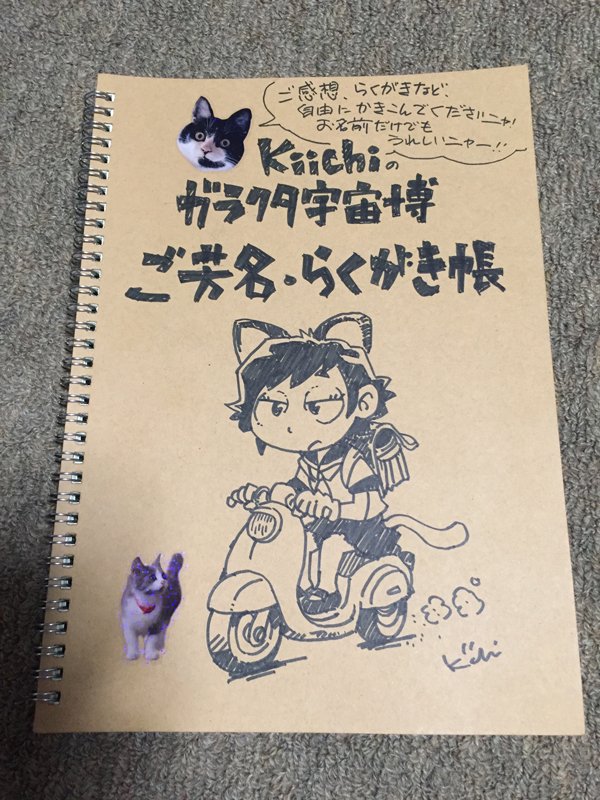 ご感想、らくがきなど、
自由にかきこんでくださいニャ!
お名前だけでも
うれしいニャー!!
Kiichiの
ガラクタ宇宙博
ご芳名・らくがき帳
Kiichi